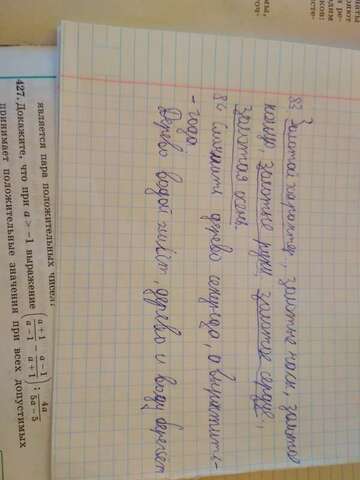 83 Золотой характер, золотые золотое
золотые руки, золотое сердце,
золотая осень.
84 Сломить дерево секунда, а вырастить-
- года.
Дерево водой живёт, дерево и воду бережёт
является пара положительных чисел:
427. Докажите, что при a > -1 выражение (a+1/a-1 - a-1/a+1) : 4a/5a-5
принимает положительные значения при всех допустимых